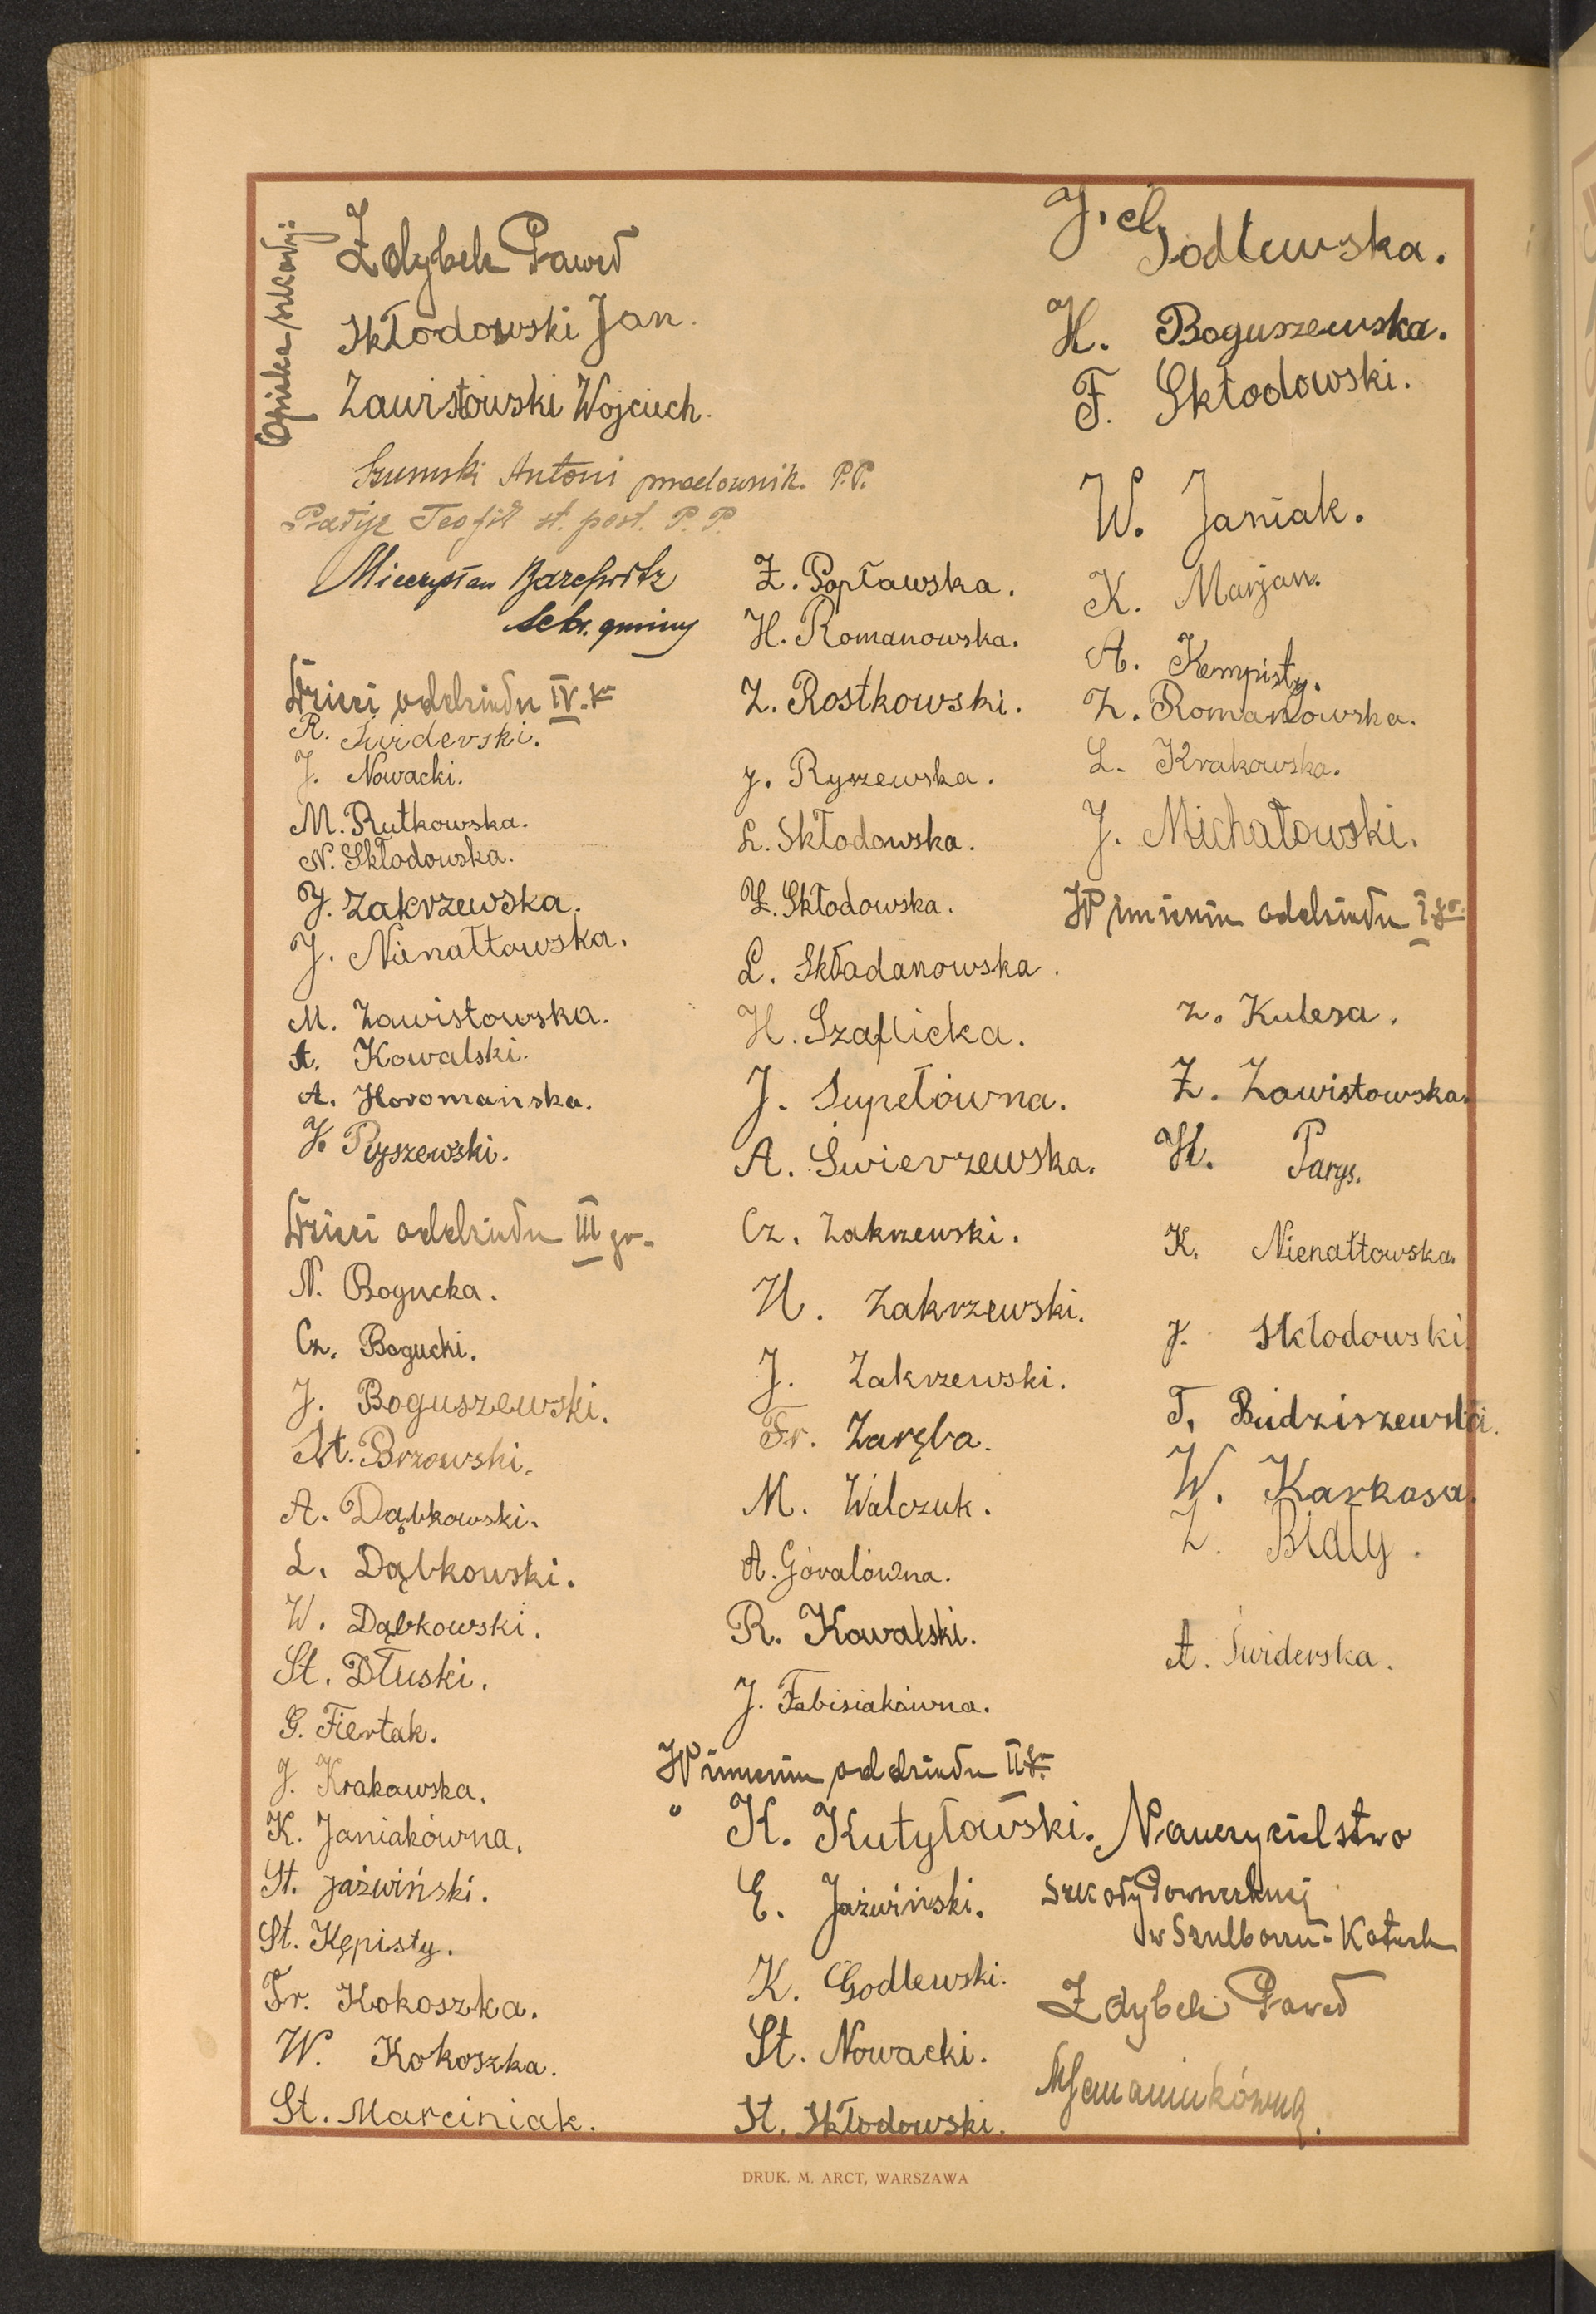 Opieka szkolny:
Zdybek Paweł
Skłodowski Jan.
Zawistowski Wojciech.
Szumski Antoni przodownik. P.P.
Teofil st. post. P. P.
Mieczysław
sekr. gminy
Dzieci oddziału IV. go
R. Świderski.
J. Nowacki.
M. Rutkowska.
N. Skłodowska.
J. Zakrzewska.
J. Nienałtowska.
M. Zawistowska.
A. Kowalski.
A. Horomańska.
J. Ryszewski.
Dzieci oddziału III go
N. Bogucka.
Cz. Bogucki.
J. Boguszewski.
St. Brzowski.
A. Dąbkowski.
L. Dąbkowski.
W. Dąbkowski.
St. Dłuski.
G. Fiertak.
J. Krakowska.
K. Janiakówna.
St. Jaźwiński.
St. Kępisty.
Fr. Kokoszka.
W. Kokoszka.
St. Marciniak.
Z. Popławska.
H. Romanowska.
Z. Rostkowski.
J. Ryszewska.
L. Skłodowska.
Z. Skłodowska.
L. Składanowska.
H. Szaflicka.
J. Supełówna.
A. Świerzewska.
Cz. Zakrzewski.
H. Zakrzewski.
J. Zakrzewski.
Fr. Zaręba.
M. Walczuk.
A. Góralówna.
R. Kowalski.
J. Fabisiakówna.
W imieniu oddziału II go
" K. Kutyłowski.
E. Jaźwiński.
K. Godlewski.
St. Nowacki.
St. Skłodowski.
J. Godlewska.
H. Boguszewska.
F. Skłodowski.
W. Janiak.
K. Marjan.
A. Kempisty.
Z. Romanowska.
L. Krakowska.
J. Michałowski.
W imieniu oddziału I go
Z. Kulesa.
Z. Zawistowska.
H. Parys.
K. Nienałtowska.
J. Skłodowski.
T. Budziszewski.
W. Karkosa.
Z. Biały.
A. Świderska.
Nauczycielstwo
Szkoły Powszechnej
w Szulborzu-Kotach
Zdybek Paweł
DRUK. M. ARCT, WARSZAWA